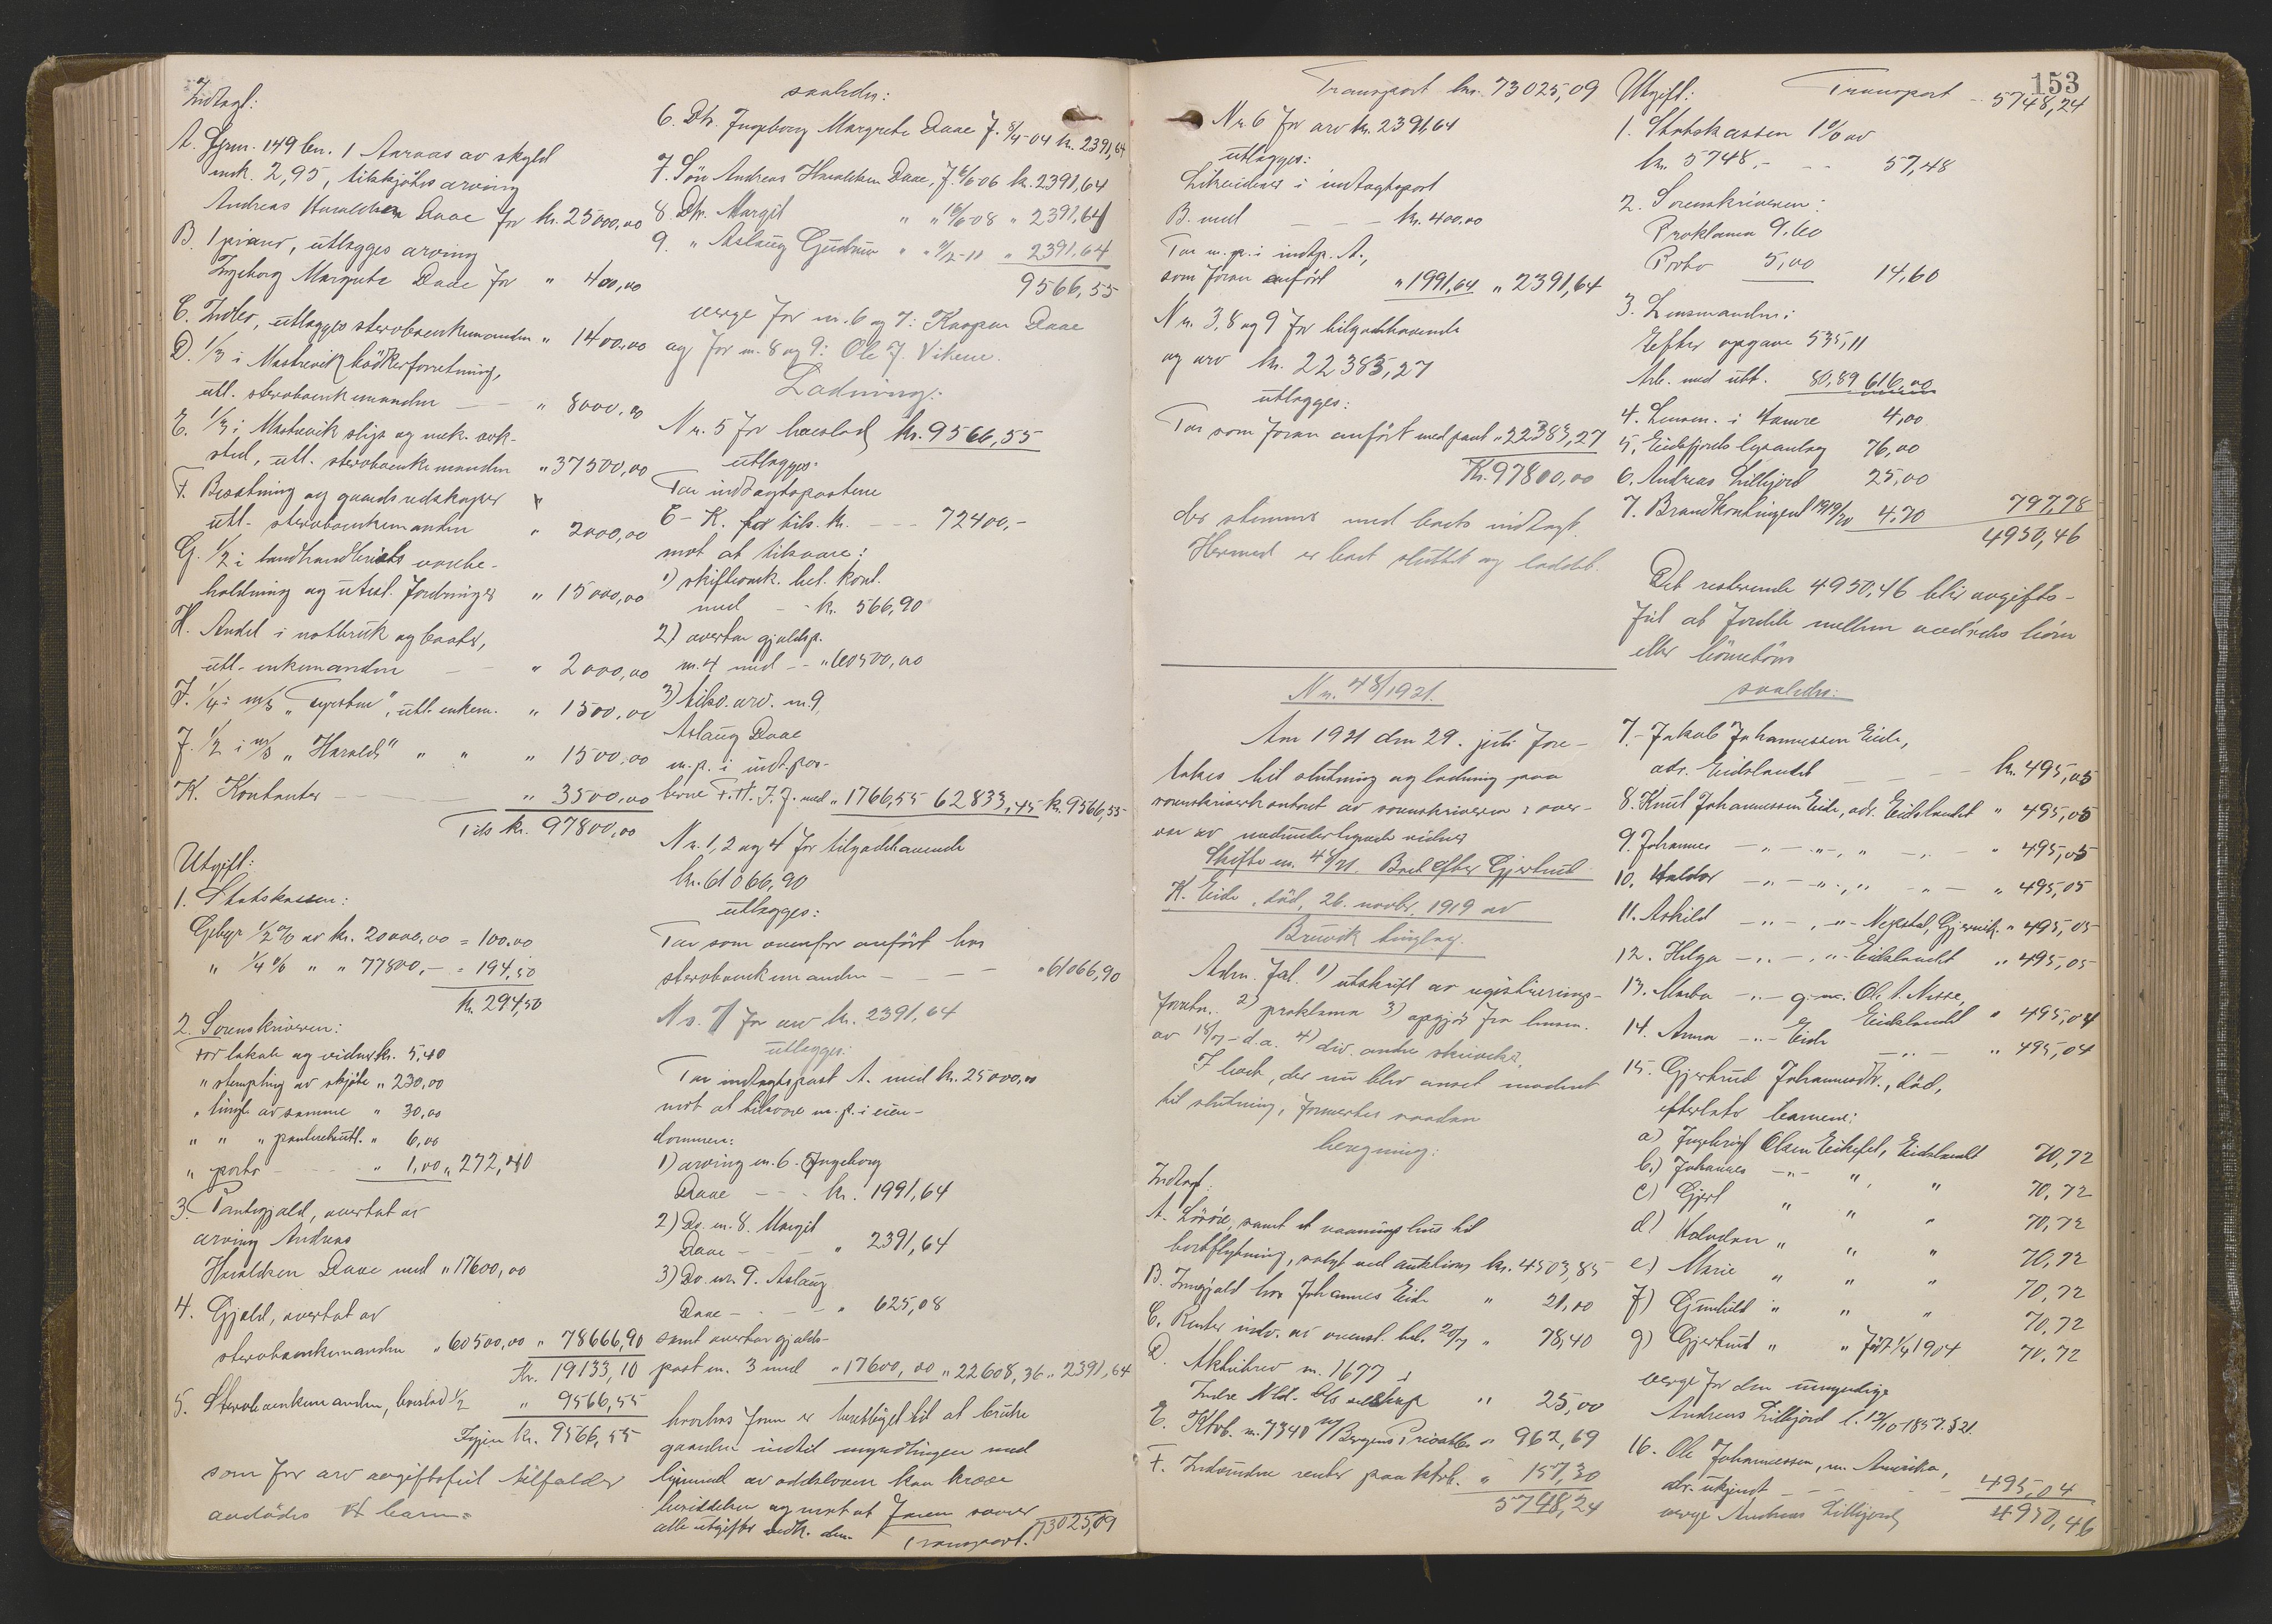 Indtægt:
A. Grm. 149 bn. 1 Aaraas av skyld
mrk. 2,95, tilskjøtes arving
Andreas Haraldsen Daae for kr. 25000,00
B. 1 piano, utlægges arving
Ingeborg Margrete Daae for " 400,00
C. Indbo, utlægges stervboenkemanden " 1400,00
D. 1/3 i Mastrevik bødkerforretning,
utl. stervboenkemanden — — " 8000,00
E. 1/3 i Mastrevik slip og mek. verk-
sted, utl. stervboenkemanden " 37500,00
F. Besætning og gaardsredskaper
utl. stervboenkemanden " 2000,00
G. 1/2 i landhandleriets varebe-
holdning og utest. fordringer " 15000,00
H. Andel i notbruk og baater,
utl. enkemanden — — " 2000,00
I. 1/4 i m/s utl. enkem. " 1500,00
J. 1/2 i m/s "Harald" " " " 1500,00
K. Kontanter — — " 3500,00
Tils kr. 97800,00
Utgift:
1. Statskassen:
Gebyr 1/2 % av kr. 20000,00 = 100,00
" 1/4 % " " 77800,— = 194,50
kr. 294,50
2. Sorenskriveren:
For lokale og vidner kr. 5,40
" stempling av skjøte " 230,00
" tingl. av samme " 30,00
" " " pantehæft. " 6,00
" porto — — " 1,00 " 272,40
3. Pantegjæld, overtat av
arving Andreas
Haraldsen Daae med " 17600,00
4. Gjæld, overtat av
stervboenkemanden " 60500,00 " 78666,90
Kr. 19133,10
5. Stervboenkemanden, boeslod 1/2 " 9566,55
Igjen kr. 9566,55
som for arv avgiftsfrit tilfalder
avdødes 4 barn
saaledes:
6. Dtr. Ingeborg Margrete Daae f. 8/4-04 kr. 2391,64
7. Søn Andreas Haraldsen Daae, f. 6/6 06 kr. 2391,64
8. Dtr. Margit " " 16/6-08 " 2391,64
9. " Aslaug Gudrun " " 9/12-11 " 2391,64
9566,55
verge for nr. 6 og 7: Kasper Daae
og for nr. 8 og 9: Ole J. Vikene.
Lodning:
Nr. 5 for boeslod kr. 9566,55
utlægges:
Tar indtægtsposterne
C – K. for tils. kr. — — 72400,—
mot at tilsvare:
1) skifteomk. bel. kont.
med — - kr. 566,90
2) overtar gjældsp.
nr. 4 med - - " 60500,00
3) tilsv. arv. nr. 9,
Aslaug Daae
m. p. i indt.pos-
terne F. H. I. J. med " 1766,55 62833,45 kr. 9566,55
Nr. 1, 2 og 4 for tilgodehavende
kr. 61066,90
utlægges:
Tar som ovenfor anført hos
stervboenkemanden — — — " 61066,90
Nr. 7 for arv kr. 2391,64
utlægges:
Tar indtægtspost A. med kr. 25000,00
mot at tilsvare m. p. i eien-
dommen:
1) arving nr. 6. Ingeborg
Daae - - - kr. 1991,64
2) Do. nr. 8. Margit
Daae - — — " 2391,64
3) Do. nr. 9. Aslaug
Daae - — — " 625,08
samt overtar gjælds-
post nr. 3 med " 17600,00 " 22608,36 " 2391,64
hvorhos faren er berettiget til at bruke
gaarden indtil myndlingen med
hjemmel av odelsloven kan kræve
besiddelsen og mot at faren svarer
alle utgifter vedk. den
Transport. 73025,09
153
Transport kr. 73025,09
Nr. 6 for arv kr. 2391,64
utlægges:
Likeledes i indtægtspost
B. med — — kr. 400,00
Tar m. p. i indtp. A.,
som foran anført " 1991,64 " 2391,64
Nr. 3, 8 og 9 for tilgodehavende
og arv kr. 22383,27
utlægges:
Tar som foran anført med pant " 22383,27
Kr. 97800,00
der stemmer med boets indtægt.
Hermed er boet sluttet og loddet.
Nr. 48/1921.
Aar 1921 den 29. juli fore-
takes til slutning og lodning paa
sorenskriverkontoret av sorenskriveren i over-
vær av nedundertegnede vidner
Skifte nr. 48/21. Boet efter Gjertrud
K. Eide, død 26. novbr. 1919 av
Bruvik tinglag.
Adm. fol. 1) utskrift av registrerings-
forretn. 2) proklama 3) opgjør fra lensm.
av 18/7 d.a. 4) div. andre skrivelser.
I boet, der nu blev anset modent
til slutning, formertes saadan
beregning:
Indtægt:
A. Løsøre, samt et vaaningshus til
bortflytning, solgt ved auktion kr. 4503,85
B. Inngjæld hos Johannes Eide " 21,00
C. Renter indv. av ovenst. bel. 20/7 " 78,40
D. Aktiebrev nr. 1677 i
Indre Nhl. D/s selskap " 25,00
E. Ktrb. nr. 7340 m/ Bergens Privatb. " 962,69
F. Indvundne renter paa ktrb. " 157,30
5748,24
Utgift: Transport - 5748,24
1. Statskassen 1 % av
kr. 5748,- - - 57,48
2. Sorenskriveren:
Proklama 9,60
Porto 5,00 14,60
3. Lensmanden:
Efter opgave 535,11
Arb. med utl. 80,89 616,00
4. Lensm. i Hamre 4,00
5. Eidsfjords lysanlæg 76,00
6. Andreas Lilletjord 25,00
7. Brandkontingent 1919/20 4,70 797,78
4950,46
Det resterende 4950,46 blir avgifts-
frit at fordele mellem avdødes børn
eller børnebørn
saaledes:
7. - Jakob Johannessen Eide,
adr. Eidslandet — — — kr. 495,05
8. Knut Johannessen Eide, adr. Eidslandet " 495,05
9. Johannes — " — " —, " — " — " 495,05
10. Haldor — " — " —, " — " — " 495,05
11. Askild — " —, " - Gjervik. " 495,05
12. Helga — " —, " - Eidslandet " 495,05
13. Marta — " — g. m. Ole
Eidslandet " 495,04
14. Anna — " — Eide — " — " 495,04
15. Gjertrud Johannesdtr., død,
efterlatt barnene:
a) Ingebrigt Olsen Eikefet, Eidslandet 70,72
b.) Johannes — " — ", " 70,72
c) Gjert " " " 70,72
d) Halvdan " " " 70,72
e) Marie " " " 70,72
f) Gunhild " " " 70,72
g) Gjertrud " " født 1/4 1904 70,72
verge for den umyndige
Andreas Lilletjord l. 12/10-1857. § 21.
16. Ole Johannessen, m. Amerika,
adr. ukjendt — — — 495,04
verge Andreas Lilletjord 4950,46